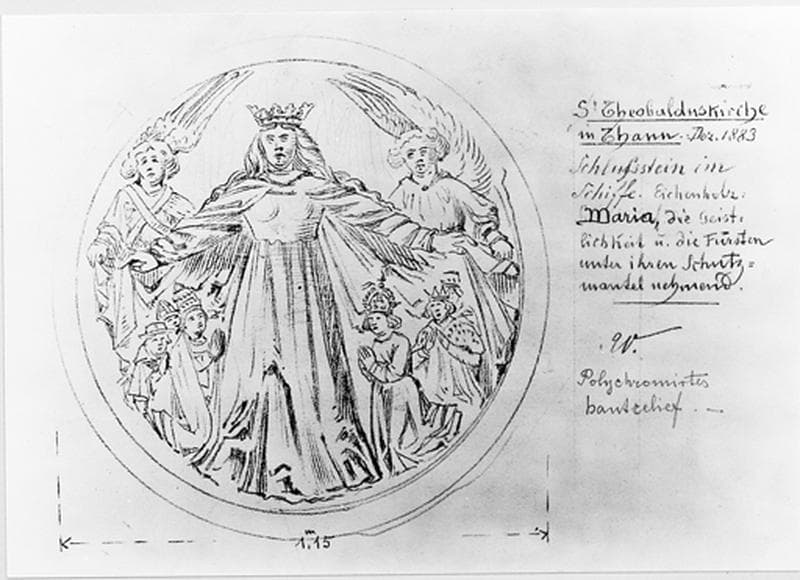 St Theobalduskirche
in Thann. Dez. 1883
Schlußstein im
Schiffe. Eichenholz:
Maria, die Geist-
lichkeit u. die Fürsten
unter ihren Schutz=
mantel nehmend.
Polychromirtes
hautrelief. —
m
1,15